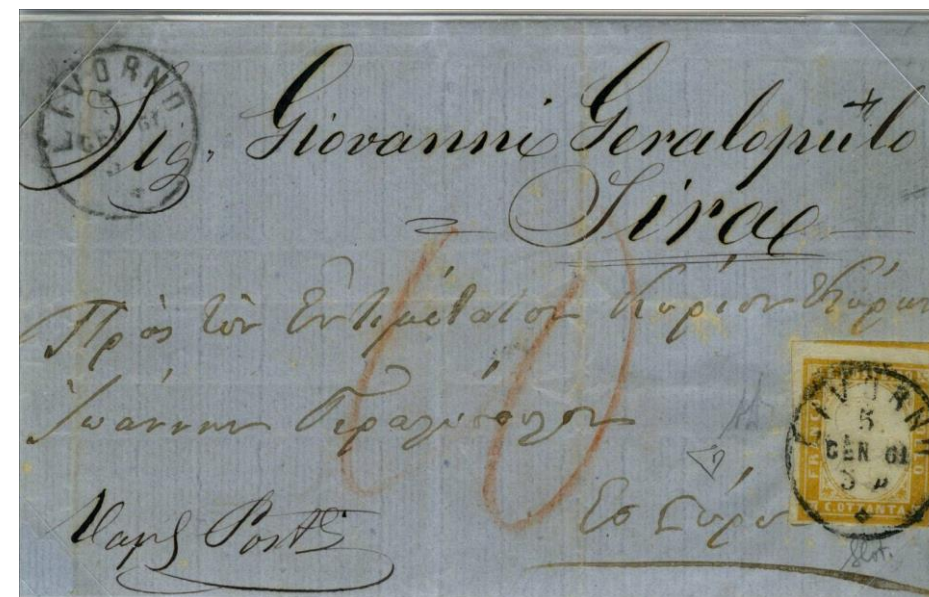 LIVORNO
GEN 61
Sig. Giovanni Geralopulo
Sira
10
Πρὸς τὸν Ἐντιμότατον Κύριον Κύριον
Ἰωάννην Γεραλόπουλον
Εἰς Σύρα
LIVORNO
5
GEN 61
3
C. OTTANTA
Vap. Postⁱ